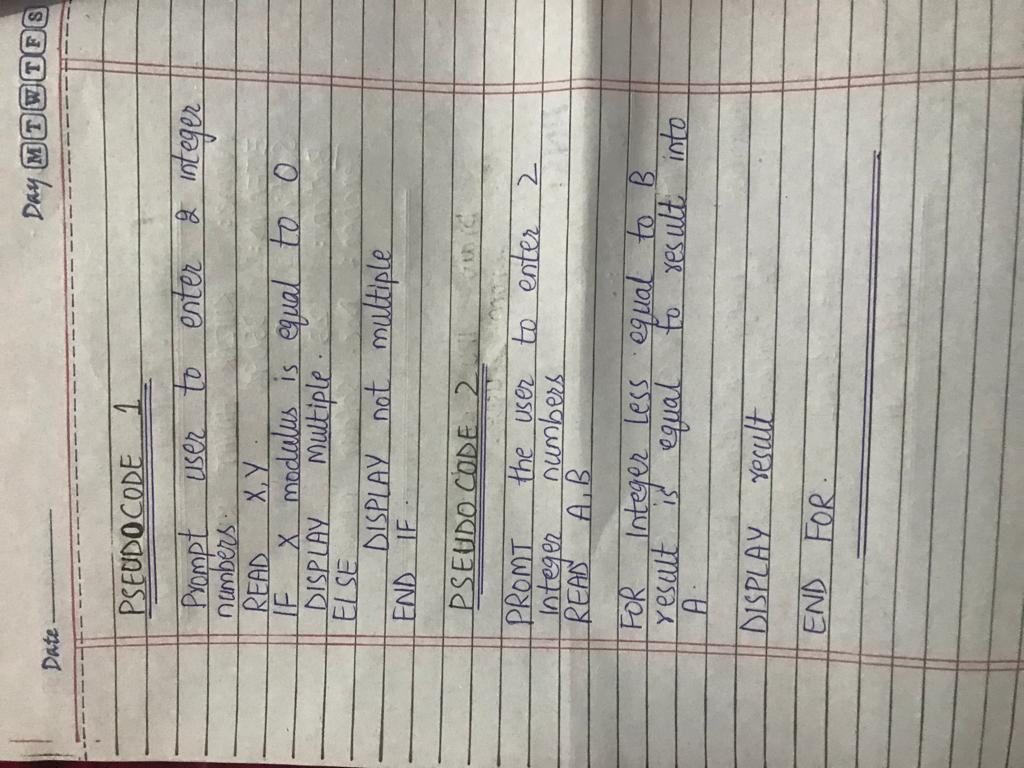 Date
Day M T W T F S
PSEUDOCODE 1
Prompt user to enter 2 integer
numbers.
READ X,Y
IF X modulus is equal to 0
DISPLAY multiple.
ELSE
DISPLAY not multiple
END IF.
PSEUDOCODE 2
PROMT the user to enter 2
Integer numbers
READ A,B
FOR Integer Less equal to B
result is equal to result into
A.
DISPLAY result
END FOR.